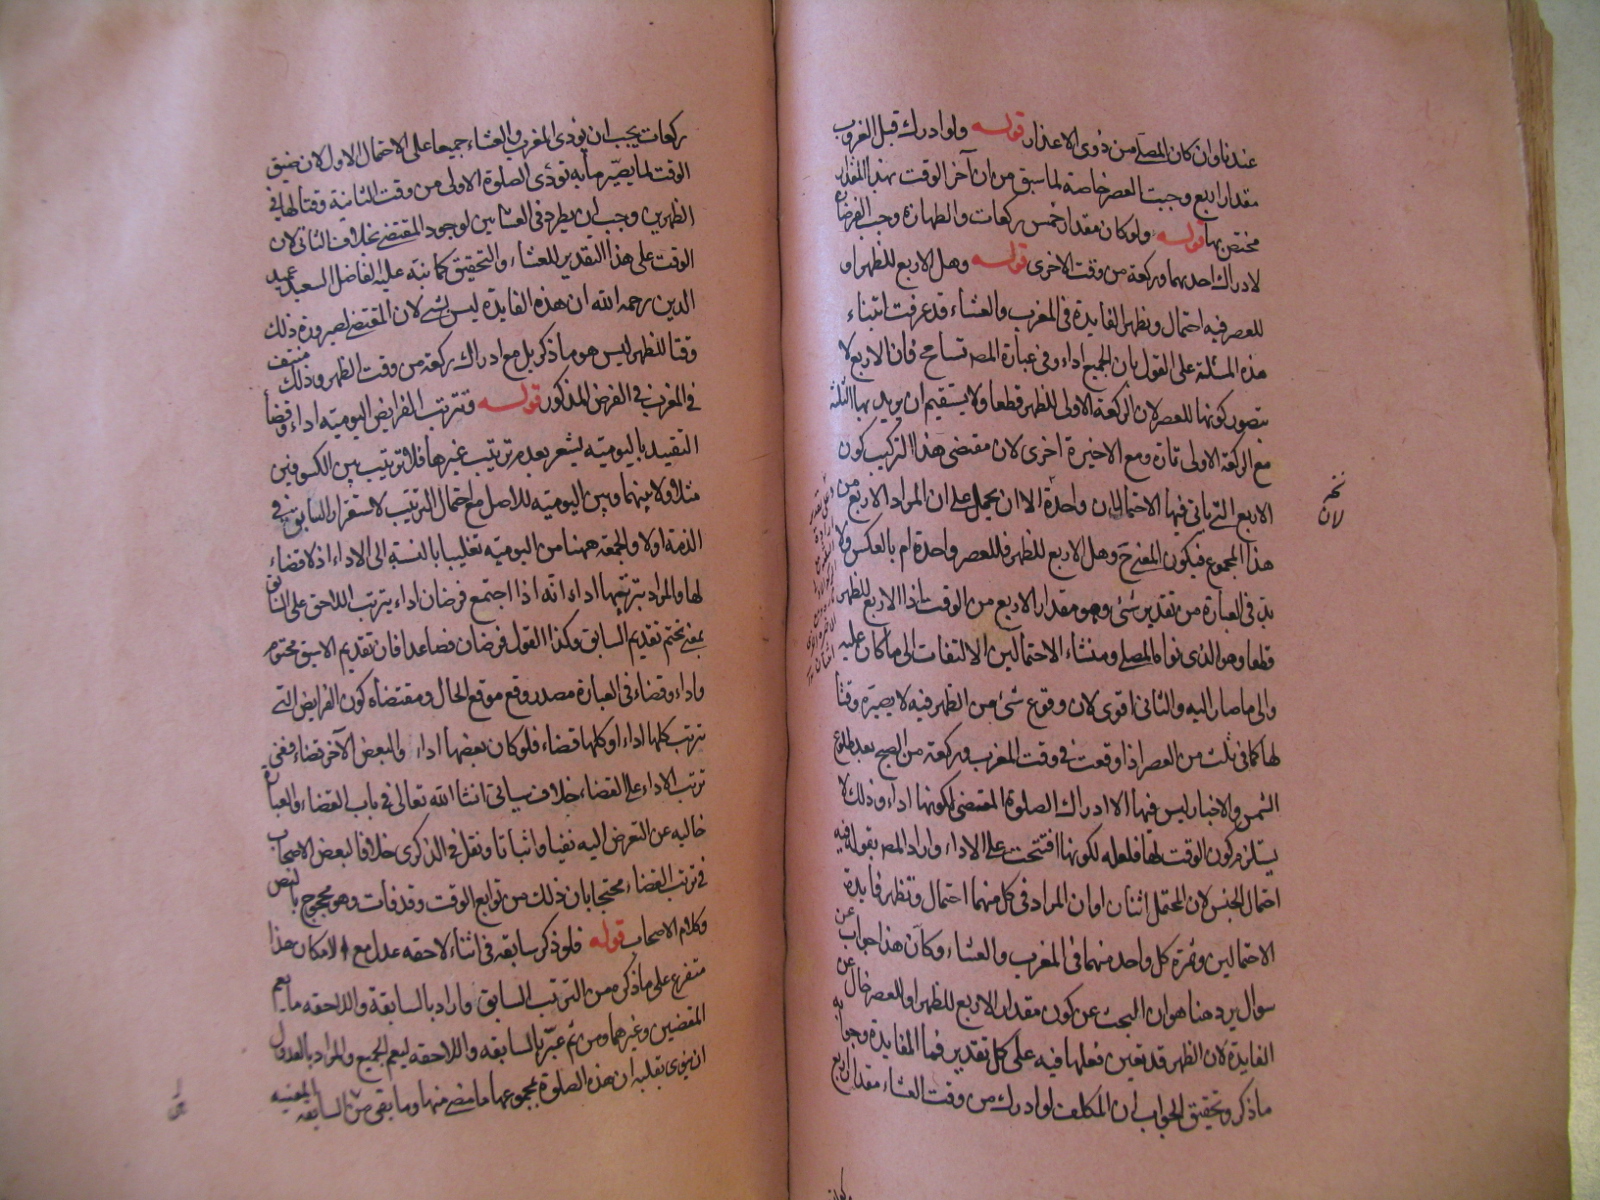 عندنا وان كان المصلے من ذوى الاعذار قوله ولو ادرك قبل الغروب
مقدار اربع وجبت العصر خاصة لما سبق من ان آخر الوقت بهذا المقدار
مختص بها قوله ولو كان مقدار خمس ركعات والطهارة وجب الفرضان
لادراك احديهما وركعة من وقت الاخرى قوله وهل الاربع للظهر او
للعصر فيه احتمال وتظهر الفايدة فى المغرب والعشاء قد عرفت ابتناء
هذه المسئلة على القول بان الجميع اداء وفى عبارة المصـ تسامح فان الاربع لا
يتصور كونها للعصر لان الركعة الاولى للظهر قطعا ولا يستقيم ان يريد بها الثلثة
مع الركعة الاولى تارة ومع الاخيرة اخرى لان مقتضى هذا التركيب كون
الاربع التے ياتى فيها الاحتمالان واحدة الا ان يحمل على ان المراد الاربع من
هذا المجموع فيكون المعنے ح وهل الاربع للظهر فللعصر واحدة ام بالعكس ولا
بد فى العبارة من تقدير شئ وهو مقدار الاربع من الوقت اذا الاربع للظهر
قطعا وهو الذى نواه المصلے ومنشاء الاحتمالين الالتفات الى ما كان عليه
والى ما صار اليه والثانى اقوى لان وقوع شئ من الظهر فيه لا يصيّره وقتا
لها كما فى ثلث من العصر اذا وقعت فى وقت المغرب وركعة من الصبح بعد طلوع
الشمس والاخبار ليس فيها الا ادراك الصلوة المقتضى لكونها اداء وذلك لا
يستلزم كون الوقت لها فلعله لكونها افتتحت على الاداء واراد المصـ بقوله فيه
احتمال الجنس لان المحتمل اثنان او ان المراد فى كل منهما احتمال وتظهر فايدة
الاحتمالين وثمرة كل واحد منهما فى المغرب والعشاء وكان هذا جواب عن
سوال يرد هنا هو ان البحث عن كون مقدار الاربع للظهر او للعصر خال عن
الفايدة لان الظهر قد تعين فعلها فيه على كل تقدير فما الفايدة وجوابه
ما ذكر وتحقيق الجواب ان المكلف لو ادرك من وقت العشاء مقدار اربع
ركعات يجب ان يؤدى المغرب والعشاء جميعا على الاحتمال الاول لان ضيق
الوقت لما يصيّر ما به تؤدى الصلوة الاولى من وقت الثانية وقتا لها فى
الظهرين وجب ان يطرد فى العشاءين لوجود المقتضے بخلاف الثانى لان
الوقت على هذا التقدير للعشاء والتحقيق كما نبه عليه الفاضل السعيد عميد
الدين رحمه الله ان هذه الفايدة ليس بشئ لان المقتضے لصيرورة ذلك
وقتا للظهر ليس هو ما ذكر بل مع ادراك ركعة من وقت الظهر وذلك منتف
فى المغرب فى الفرض المذكور قوله وتترتب الفرايض اليومية اداء وقضاء
التقييد باليومية يشعر بعدم ترتيب غيرها فلا ترتيب بين الكسوفين
مثلا ولا بينهما وبين اليومية للاصل مع احتمال الترتيب لاستقرار السابق فى
الذمة اولا والجمعة ههنا من اليومية تغليبا بالنسبة الى الاداء اذ لا قضاء
لها والمراد بترتبها اداء انه اذا اجتمع فرضان اداء يترتب اللاحق على السابق
بمعنے تحتم تقديم السابق وكذا القول فرضان فصاعدا فان تقديم الاسبق محتوم
واداء وقضاء فى العبارة مصدر وقع موقع الحال ومقتضاه كون الفرايض التے
تترتب كلها اداء او كلها قضاء فلو كان بعضها اداء والبعض الآخر قضاء ففى
ترتب الاداء على القضاء خلاف سياتى انشاء الله تعالى فى باب القضاء والعبارة
خاليه عن التعرض اليه نفيا واثباتا ونقل فى الذكرى خلافا لبعض الاصحاب
فى ترتب القضاء محتجا بان ذلك من توابع الوقت وقد فات وهو محجوج بالنص
وكلام الاصحاب قوله فلو ذكر سابقه فى اثناء لاحقه عدل مع الامكان هذا
متفرع على ما ذكره من الترتب السابق واراد بالسابقة واللاحقه ما يعم
المقضيين وغيرهما ومن ثم عبّر بالسابقه واللاحقه ليعم الجميع والمراد بالعدول
ان ينوى بقلبه ان هذه الصلوة بمجموعها ما مضے منها وما بقى من السابقه المعينه